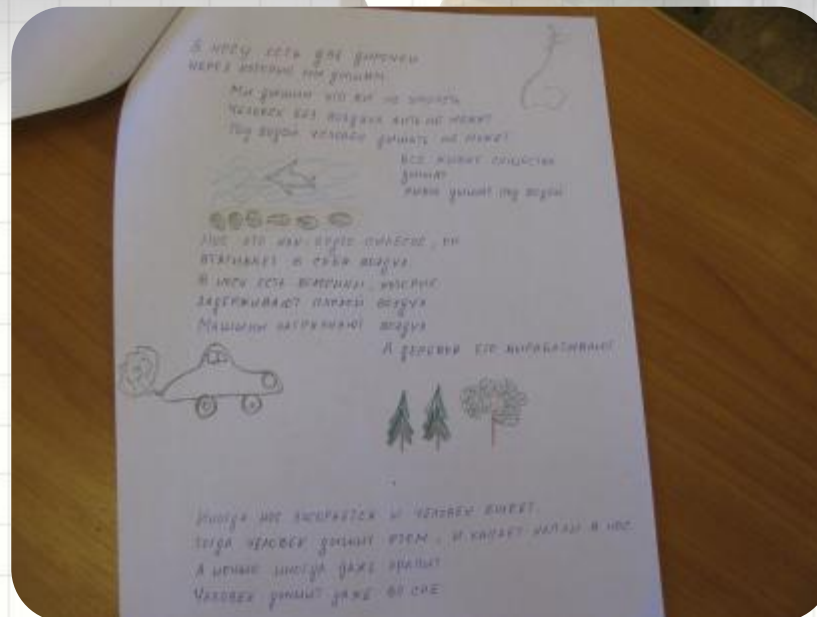 В носу есть две дырочки
через которые мы дышим.
Мы дышим что бы не умереть
Человек без воздуха жить не может
Под водой человек дышать не может
Все живые существа
дышат
Рыбы дышат под водой
Нос это как пылесос, он
втягивает в себя воздух
В носу есть волосинки, которые
задерживают плохой воздух
Машины загрязняют воздух
А деревья его вырабатывают
Иногда нос засоряется и человек болеет.
Тогда человек дышит ртом, и капает капли в нос
А ночью иногда даже храпит
Человек дышит даже во сне